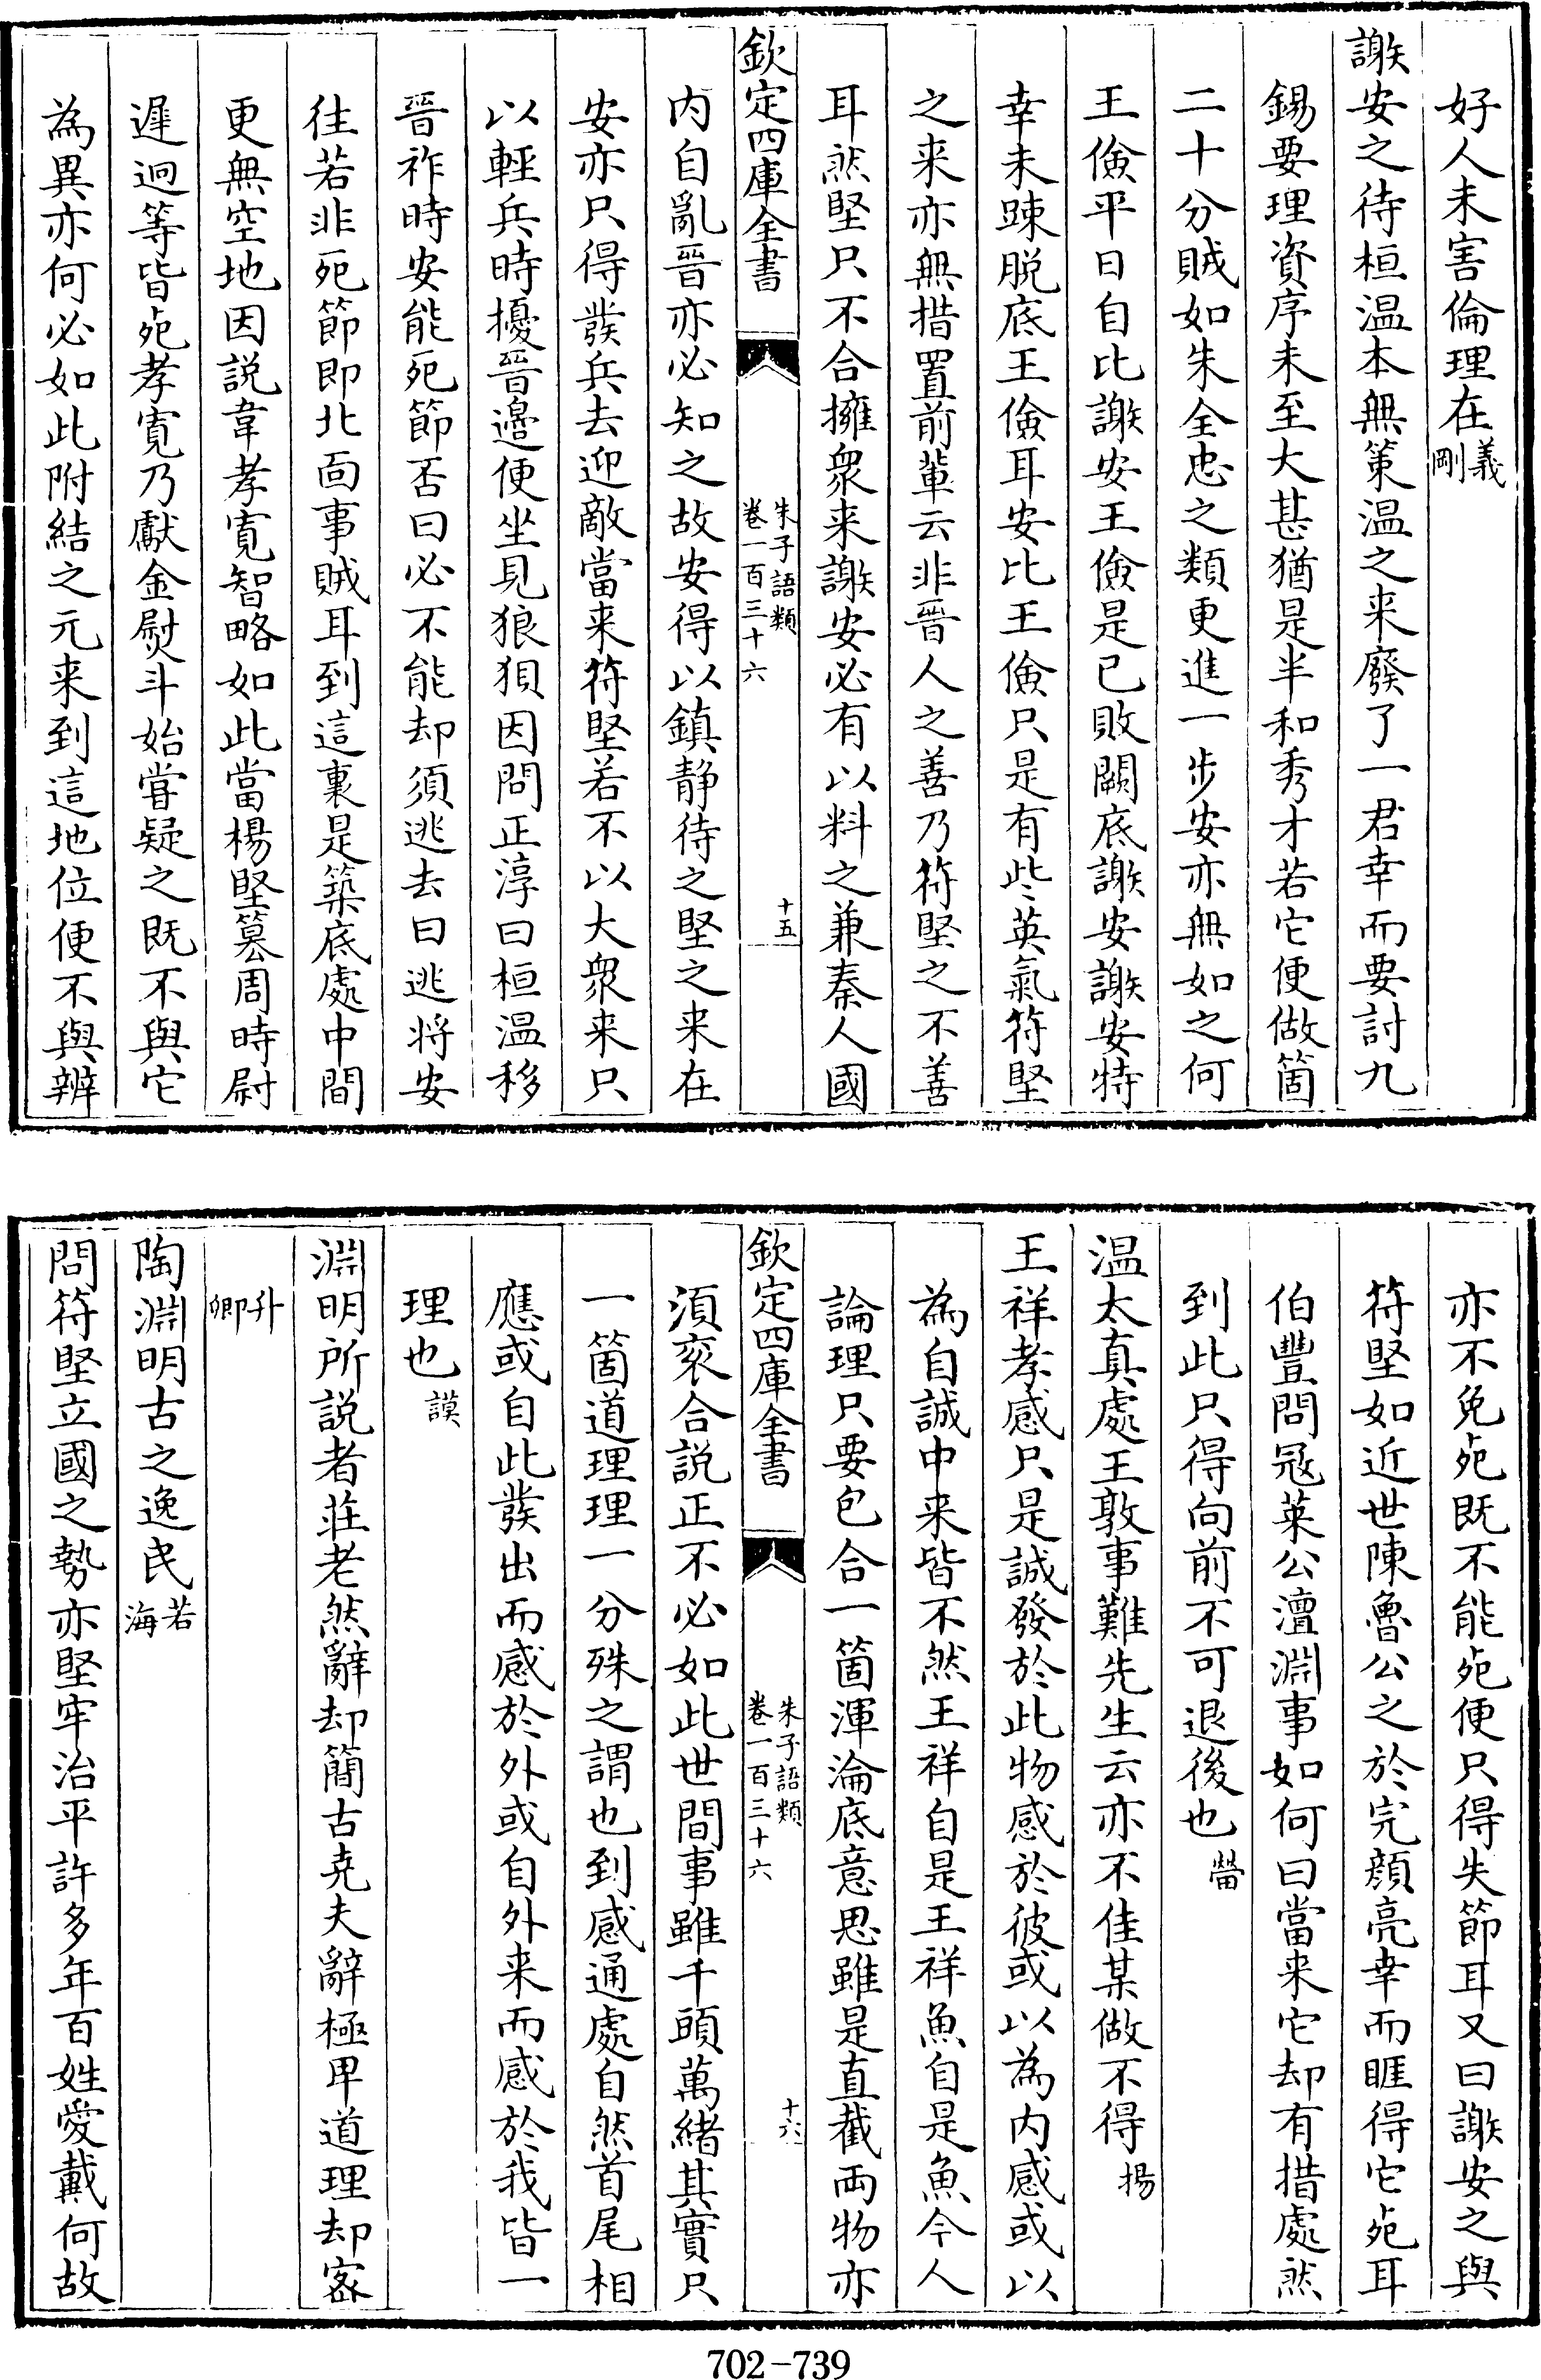 好人未害倫理在義剛
謝安之待桓温本無策温之来廢了一君幸而要討九
錫要理資序未至大甚猶是半和秀才若它便做箇
二十分賊如朱全忠之類更進一步安亦無如之何
王儉平日自比謝安王儉是已敗闕底謝安謝安特
幸未踈脱底王儉耳安比王儉只是有些英氣符堅
之来亦無措置前軰云非晉人之善乃符堅之不善
耳然堅只不合擁衆来謝安必有以料之兼秦人國
欽定四庫全書
朱子語類
卷一百三十六
十五
内自亂晉亦必知之故安得以鎮静待之堅之来在
安亦只得發兵去迎敵當来符堅若不以大衆来只
以輕兵時擾晉邉便坐見狼狽因問正淳曰桓温移
晉祚時安能死節否曰必不能却須逃去曰逃将安
往若非死節即北面事賊耳到這裏是築底處中間
更無空地因説韋孝寛智略如此當楊堅簒周時尉
遲迥等皆死孝寛乃獻金熨斗始嘗疑之既不與它
為異亦何必如此附結之元来到這地位便不與辨
亦不免死既不能死便只得失節耳又曰謝安之與
符堅如近世陳魯公之於完顔亮幸而睚得它死耳
伯豐問冦莱公澶淵事如何曰當来它却有措處然
到此只得向前不可退後也㽦
温太真處王敦事難先生云亦不佳某做不得揚
王祥孝感只是誠發於此物感於彼或以為内感或以
為自誠中来皆不然王祥自是王祥魚自是魚今人
論理只要包合一箇渾淪底意思雖是直截兩物亦
欽定四庫全書
朱子語類
卷一百三十六
十六
湏衮合説正不必如此世間事雖千頭萬緒其實只
一箇道理理一分殊之謂也到感通處自然首尾相
應或自此發出而感於外或自外来而感於我皆一
理也謨
淵明所説者莊老然辭却簡古堯夫辭極卑道理却宻
升卿
陶淵明古之逸民若海
問符堅立國之勢亦堅牢治平許多年百姓愛戴何故
702-739